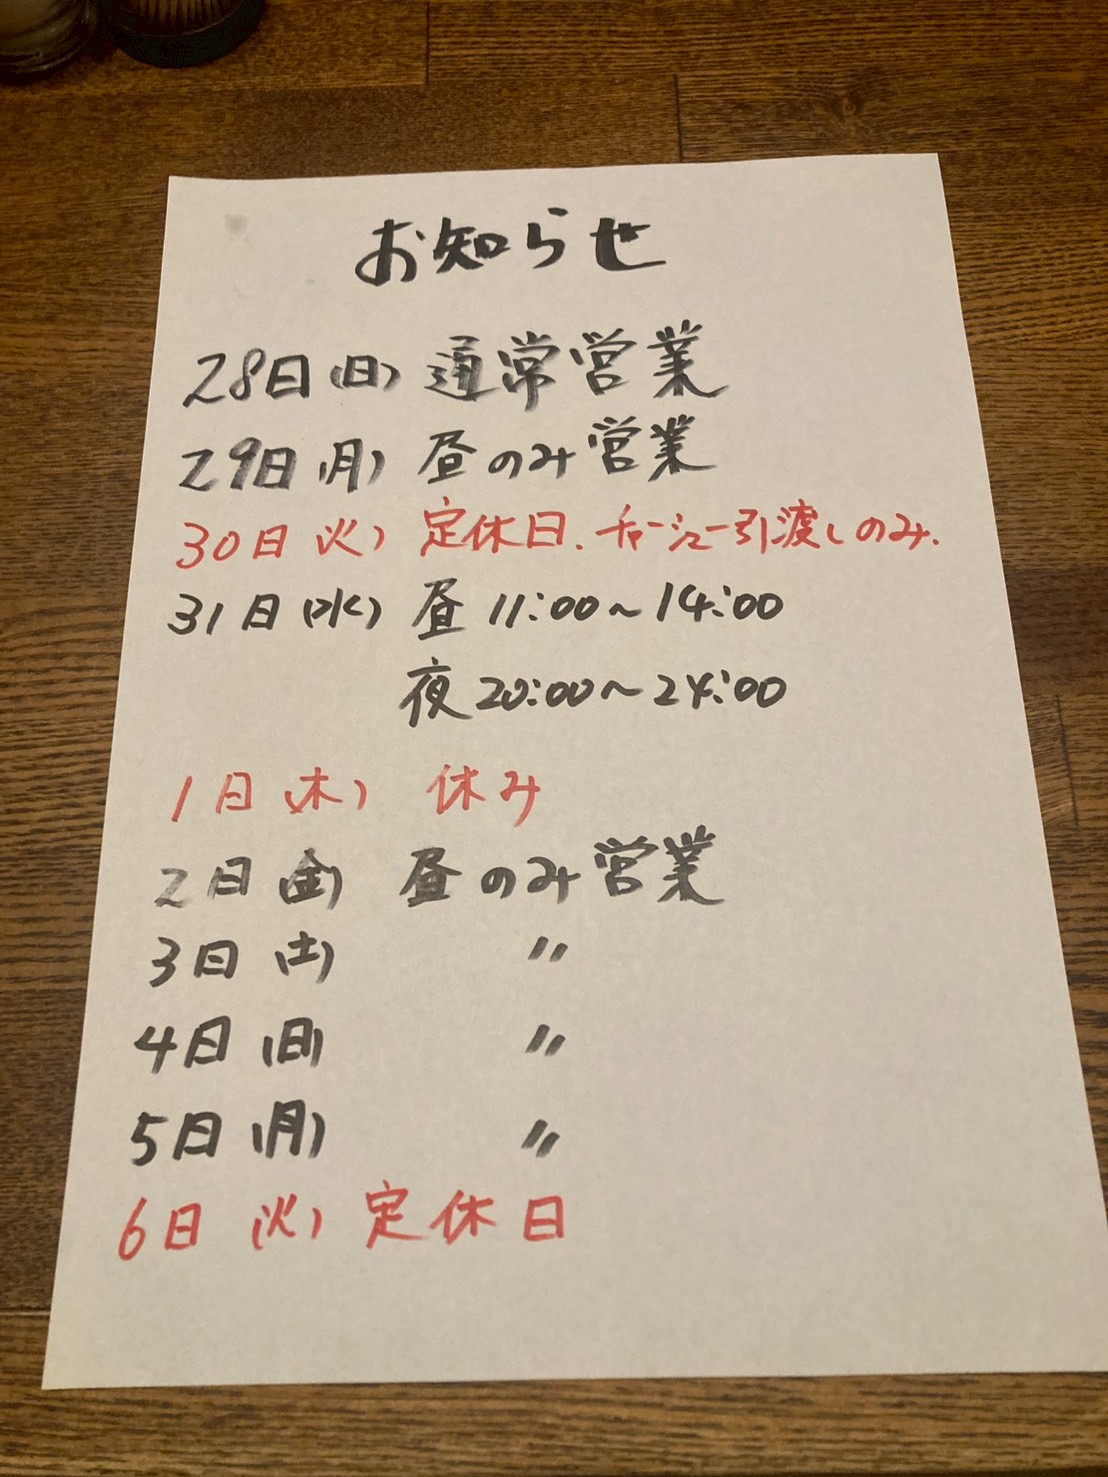 お知らせ
28日(日) 通常営業
29日(月) 昼のみ営業
30日(火) 定休日.チャーシュー引渡しのみ.
31日(水) 昼 11:00～14:00
夜 20:00～24:00
1日(木) 休み
2日(金) 昼のみ営業
3日(土) 〃
4日(日) 〃
5日(月) 〃
6日(火) 定休日